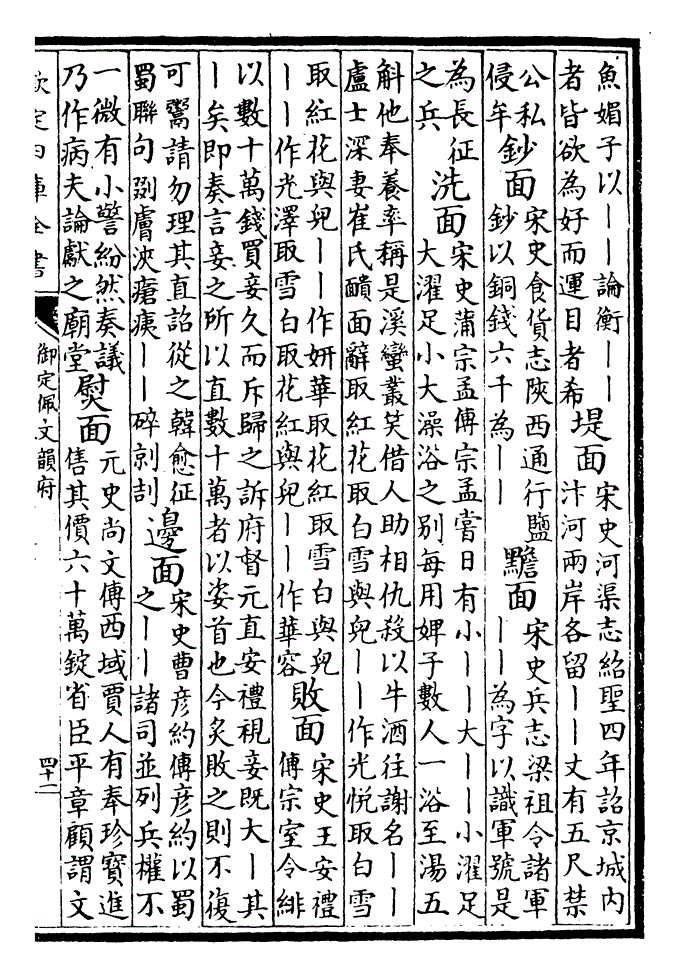 魚媚子以——論衡——
者皆欲為好而運目者希
堤面
宋史河渠志紹聖四年詔京城内
汴河兩岸各留——丈有五尺禁
公私
侵牟
鈔面
宋史食貨志陝西通行鹽
鈔以銅錢六千為——
黵面
宋史兵志梁祖令諸軍
——為字以識軍號是
為長征
之兵
洗面
宋史蒲宗孟傳宗孟嘗日有小——大——小濯足
大濯足小大澡浴之别每用婢子數人一浴至湯五
斛他奉養率稱是溪蠻叢笑借人助相仇殺以牛酒往謝名——
盧士深妻崔氏靧面辭取紅花取白雪與兒——作光悦取白雪
取紅花與兒——作妍華取花紅取雪白與兒
——作光澤取雪白取花紅與兒——作華容
敗面
宋史王安禮
傳宗室令緋
以數十萬錢買妾久而斥歸之訴府督元直安禮視妾既大—其
—矣即奏言妾之所以直數十萬者以姿首也今炙敗之則不復
可鬻請勿理其直詔從之韓愈征
蜀聯句剟膚浹瘡痍——碎剠刲
邊面
宋史曹彦約傳彦約以蜀
之——諸司並列兵權不
一微有小警紛然奏議
乃作病夫論獻之廟堂
熨面
元史尚文傳西域賈人有奉珍寶進
售其價六十萬錠省臣平章顧謂文
欽定四庫全書
御定佩文韻府